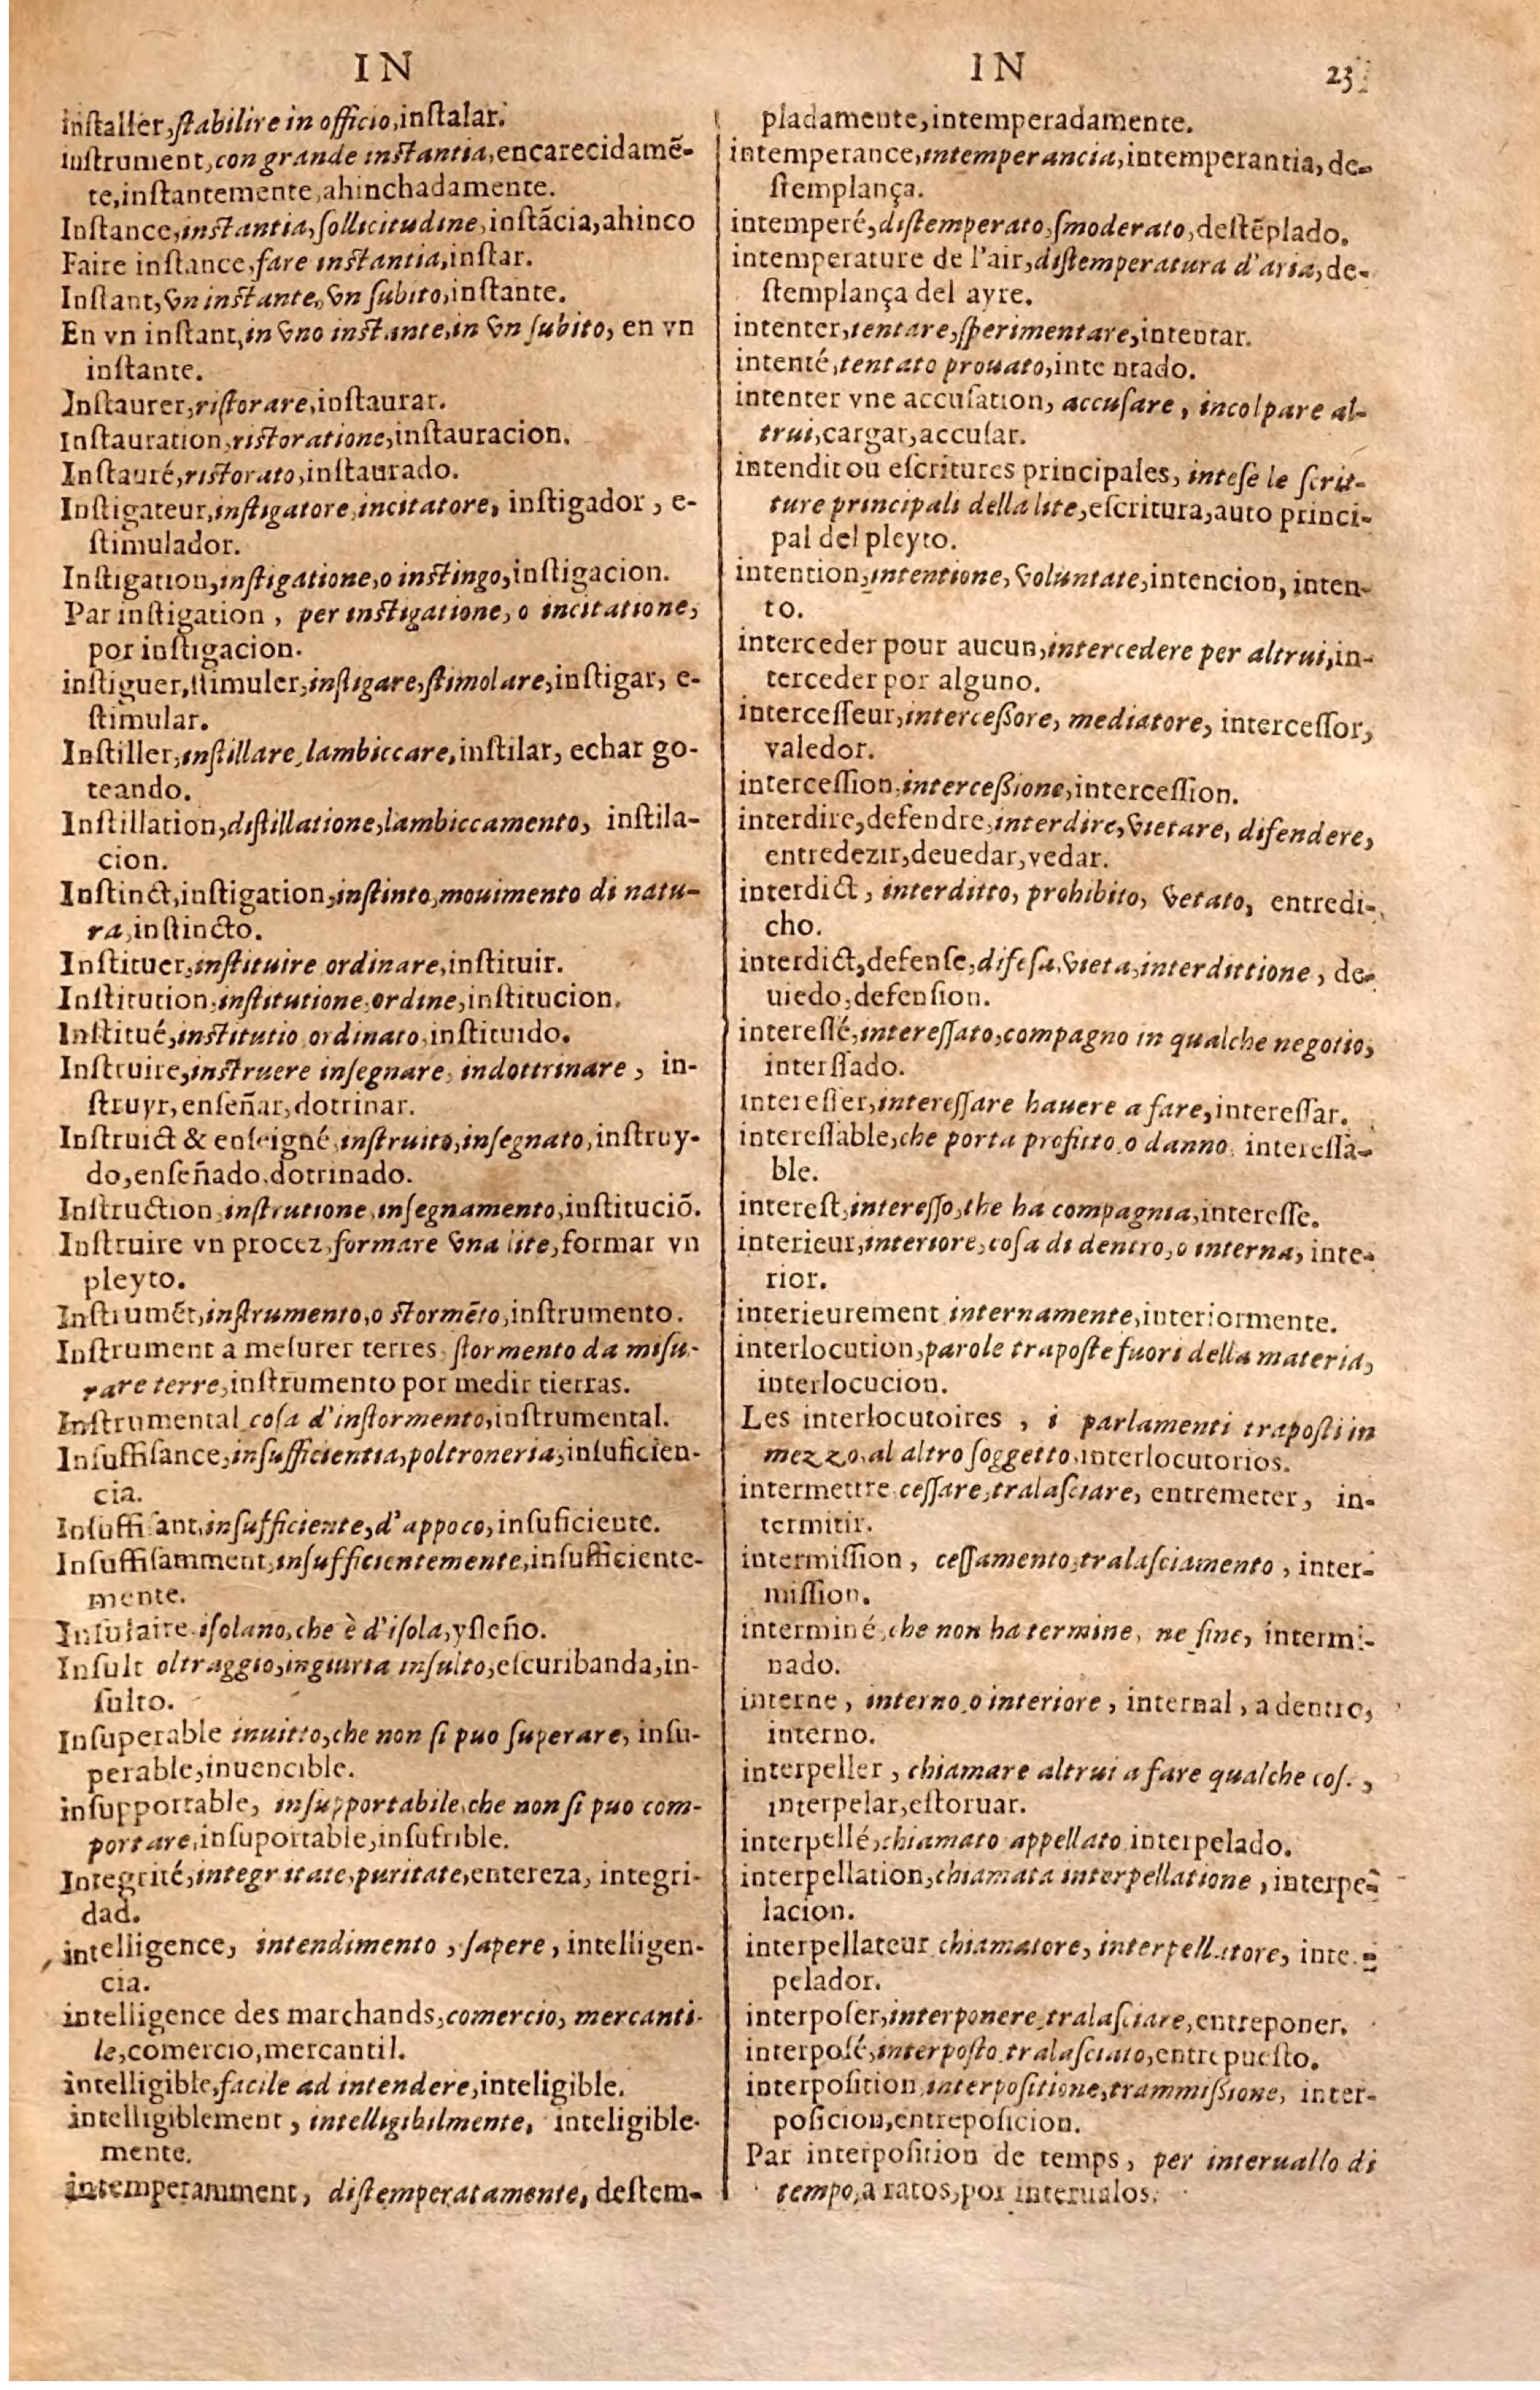 IN
installer,stabilire in officio,instalar.
instrument,con grande instantia,encarecidamẽ-
te,instantemente,ahinchadamente.
Instance,instantia,sollicitudine,instãcia,ahinco
Faire instance,fare instantia,instar.
Instant,vn instante,vn subito,instante.
En vn instant,in vno instante,in vn subito, en vn
instante.
Instaurer,ristorare,instaurar.
Instauration,ristoratione,instauracion.
Instauré,ristorato,instaurado.
Instigateur,instigatore,incitatore, instigador, e-
stimulador.
Instigation,instigatione,o instingo,instigacion.
Par instigation, per instigatione, o incitatione,
por instigacion.
instiguer,stimuler,instigare,stimolare,instigar, e-
stimular.
Instiller,instillare,lambiccare,instilar, echar go-
teando.
Instillation,distillatione,lambiccamento, instila-
cion.
Instinct,instigation,instinto,mouimento di natu-
ra,instincto.
Instituer,instituire ordinare,instituir.
Institution,institutione,ordine,institucion.
Institué,institutio ordinato,instituido.
Instruire,instruere insegnare, indottrinare, in-
struyr,enseñar,dotrinar.
Instruict & enseigné,instruito,insegnato,instruy-
do,enseñado,dotrinado.
Instruction,instrutione,insegnamento,instituciõ.
Instruire vn procez,formare vna lite,formar vn
pleyto.
Instrumẽt,instrumento,o stormẽto,instrumento.
Instrument a mesurer terres,stormento da misu-
rare terre,instrumento por medir tierras.
Instrumental cosa d'instormento,instrumental.
Insuffisance,insufficientia,poltroneria,insuficien-
cia.
Insuffisant,insufficiente,d'appoco,insuficiente.
Insuffisamment,insufficientemente,insufficiente-
mente.
Insulaire isolano,che è d'isola,ysleño.
Insult oltraggio,ingiuria insulto,escuribanda,in-
sulto.
Insuperable inuitto,che non si puo superare, insu-
perable,inuencible.
insupportable, insupportabile,che non si puo com-
portare,insuportable,insufrible.
Integrité,integritate,puritate,entereza, integri-
dad.
intelligence, intendimento, sapere, intelligen-
cia.
intelligence des marchands,comercio, mercanti-
le,comercio,mercantil.
intelligible,facile ad intendere,inteligible.
intelligiblement, intelligibilmente, inteligible-
mente.
intemperamment, distemperatamente, destem-
IN 23
pladamente,intemperadamente.
intemperance,intemperancia,intemperantia, de-
stemplança.
intemperé,distemperato,smoderato,destẽplado.
intemperature de l'air,distemperatura d'aria,de-
stemplança del ayre.
intenter,tentare,sperimentare,intentar.
intenté,tentato prouato,intentado.
intenter vne accusation, accusare, incolpare al-
trui,cargar,accusar.
intendit ou escritures principales, intese le scrit-
ture principali della lite,escritura,auto princi-
pal del pleyto.
intention,intentione,voluntate,intencion, inten-
to.
interceder pour aucun,intercedere per altrui,in-
terceder por alguno.
intercesseur,intercessore, mediatore, intercessor,
valedor.
intercession,intercessione,intercession.
interdire,defendre,interdire,vietare, difendere,
entredezir,deuedar,vedar.
interdict, interditto, prohibito, vetato, entredi-
cho.
interdict,defense,difesa,vieta,interdittione, de-
uiedo,defension.
interessé,interessato,compagno in qualche negotio,
interssado.
interesser,interessare hauere a fare,interessar.
interessable,che porta profitto,o danno, interessa-
ble.
interest,interesso,the ha compagnia,interesse.
interieur,interiore,cosa di dentro,o interna, inte-
rior.
interieurement internamente,interiormente.
interlocution,parole traposte fuori della materia,
interlocucion.
Les interlocutoires, i parlamenti traposti in
mezzo,al altro soggetto,interlocutorios.
intermettre cessare,tralasciare, entremeter, in-
termitir.
intermission, cessamento,tralasciamento, inter-
mission.
interminé,che non ha termine, ne fine, intermi-
nado.
interne, interno,o interiore, internal, a dentro,
interno.
interpeller, chiamare altrui a fare qualche cos.,
interpelar,estoruar.
interpellé,chiamato appellato interpelado.
interpellation,chiamata interpellatione, interpe-
lacion.
interpellateur chiamatore, interpellatore, inte.-
pelador.
interposer,interponere,tralasciare,entreponer.
interposé,interposto,tralasciato,entrepuesto.
interposition,interpositione,trammissione, inter-
posicion,entreposicion.
Par interposition de temps, per interuallo di
tempo,a ratos,por interualos.